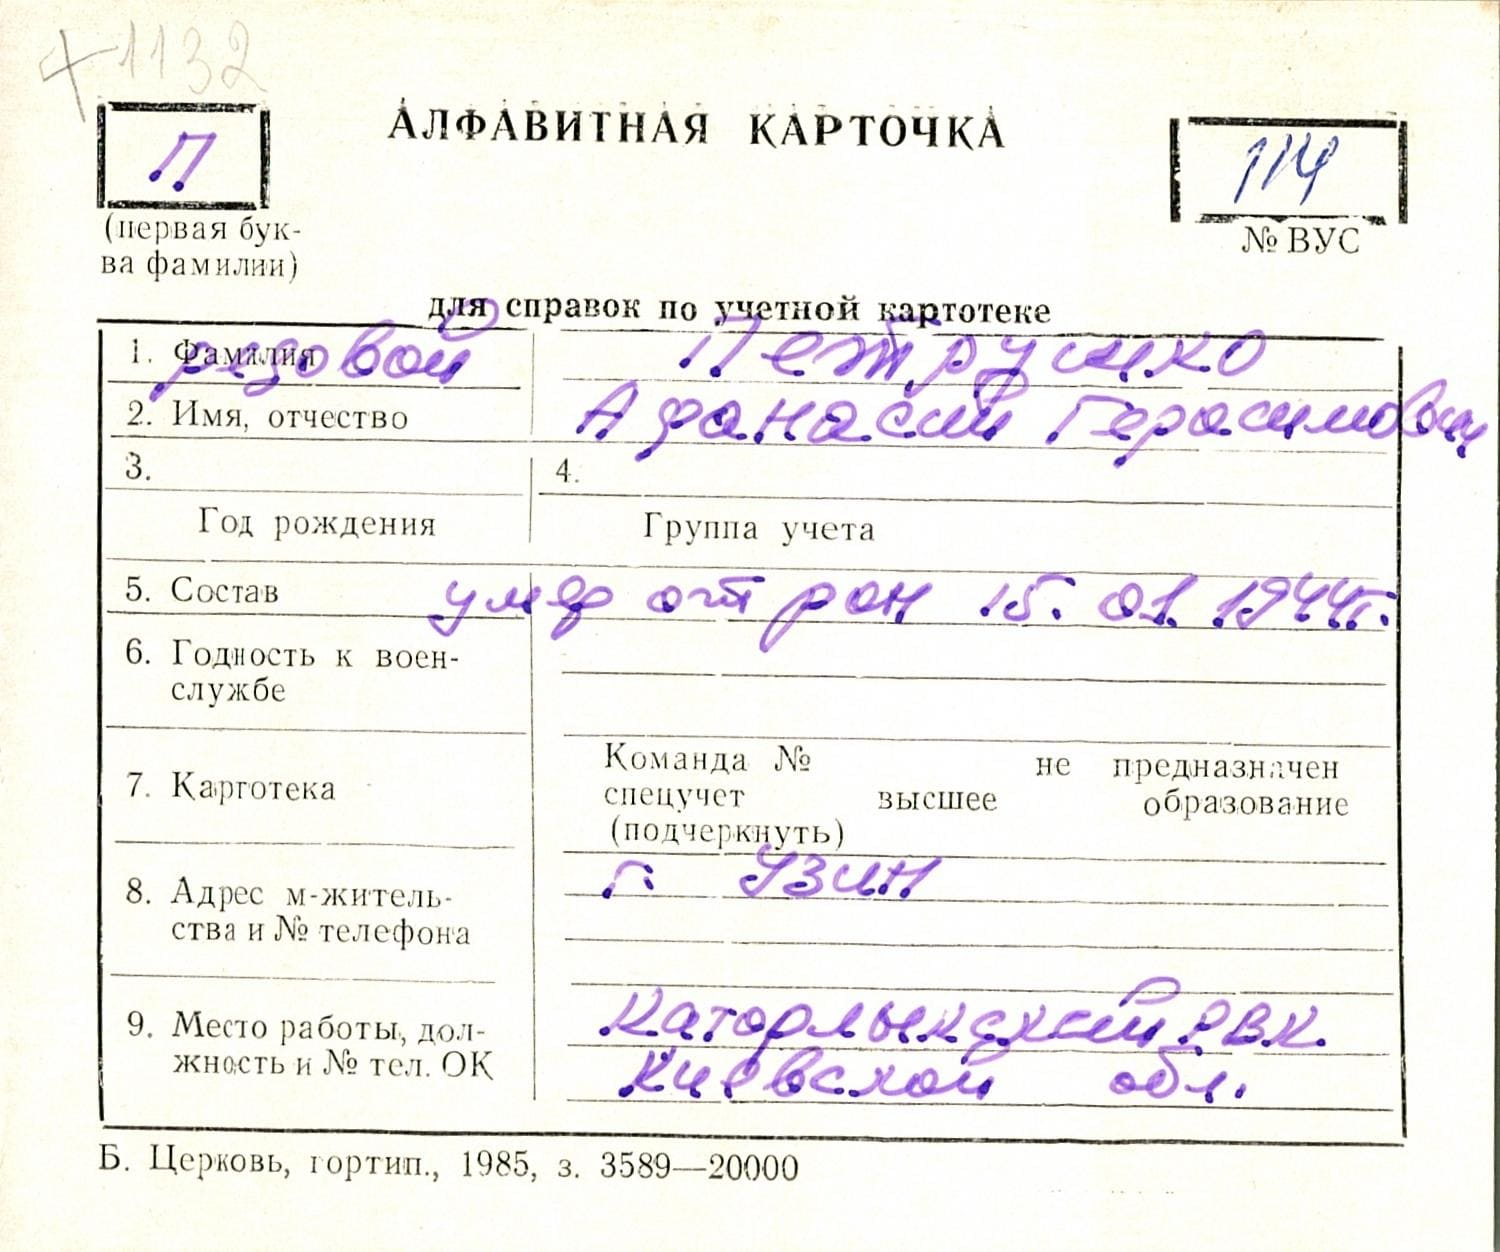 +1132
АЛФАВИТНАЯ КАРТОЧКА
П
114
(первая бук-
ва фамилии)
№ ВУС
для справок по учетной картотеке
1. Фамилия
рядовой Петрушко
2. Имя, отчество
Афанасий Герасимович
3.
4.
Год рождения
Группа учета
5. Состав
умер от ран 15. 01. 1944г.
6. Годность к воен-
службе
7. Картотека
Команда № не предназначен
спецучет высшее образование
(подчеркнуть)
8. Адрес м-житель-
ства и № телефона
г. Узин
9. Место работы, дол-
жность и № тел. ОК
Кагорлыкский РВК.
Киевской обл.
Б. Церковь, гортип., 1985, з. 3589—20000